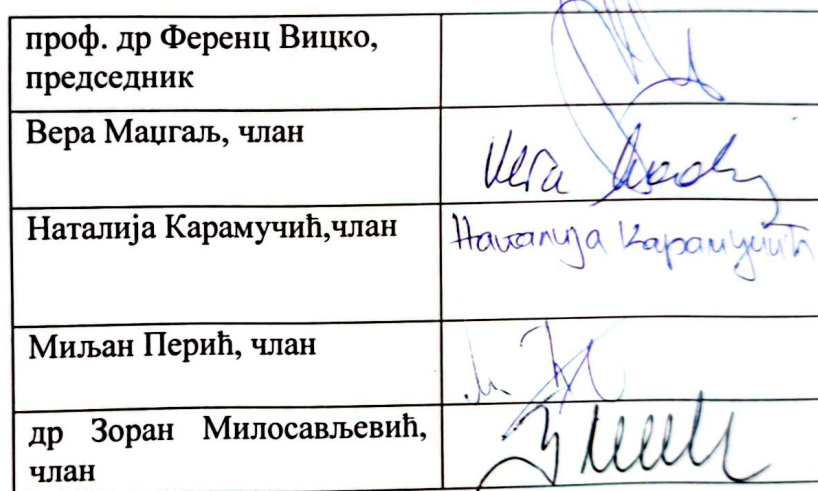 проф. др Ференц Вицко,
председник
Вера Маџгаљ, члан
Vera
Наталија Карамучић,члан
Наталија Карамучић
Миљан Перић, члан
др Зоран Милосављевић,
члан